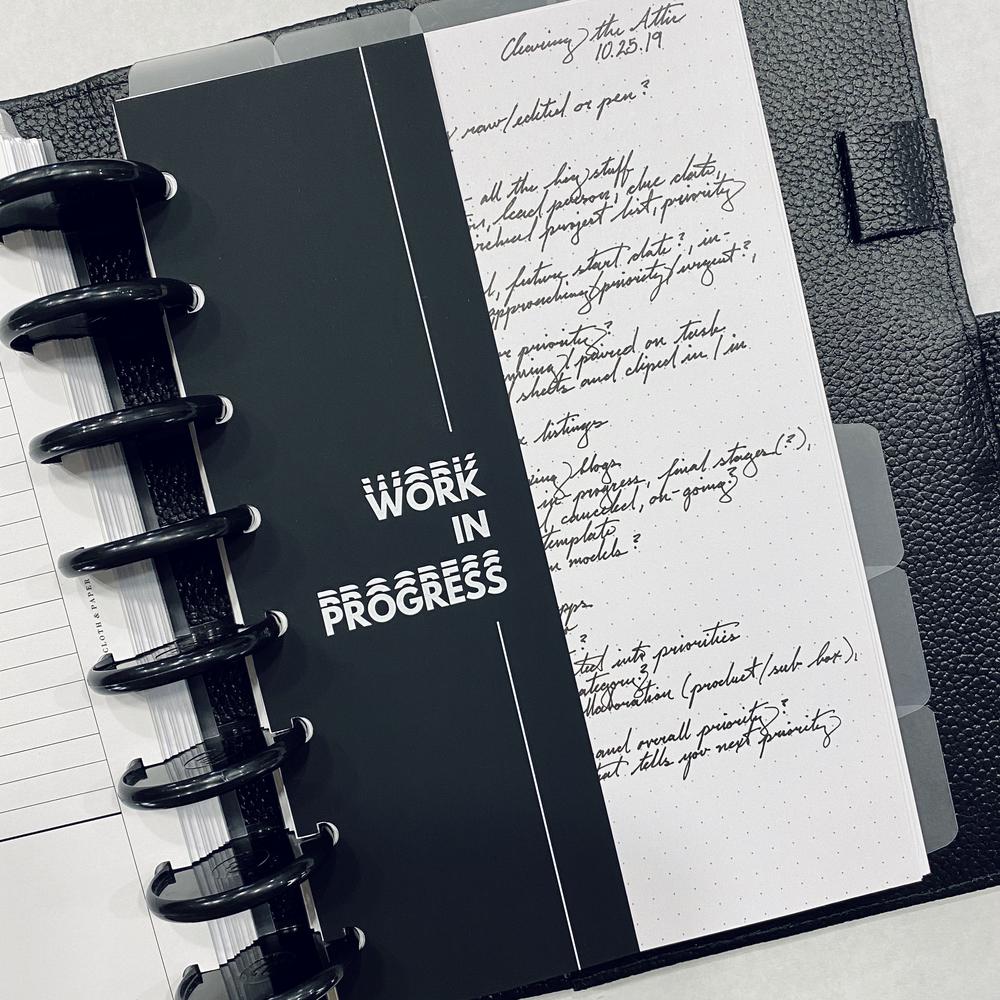 CLOTH & PAPER
WORK
IN
PROGRESS
Clearing the Attic
10.25.19
raw/edited or pen?
- all the big stuff
lead person, due date,
project list, priority
future start date?, in-
approaching/priority/urgent?,
priority?
/ paired on task
sheets and cliped in / in
listings
blogs
in-progress, final stages(?),
canceled, on-going?
template
models?
?
into priorities
category?,
(product/sub box),
and overall priority?
tells you next priority